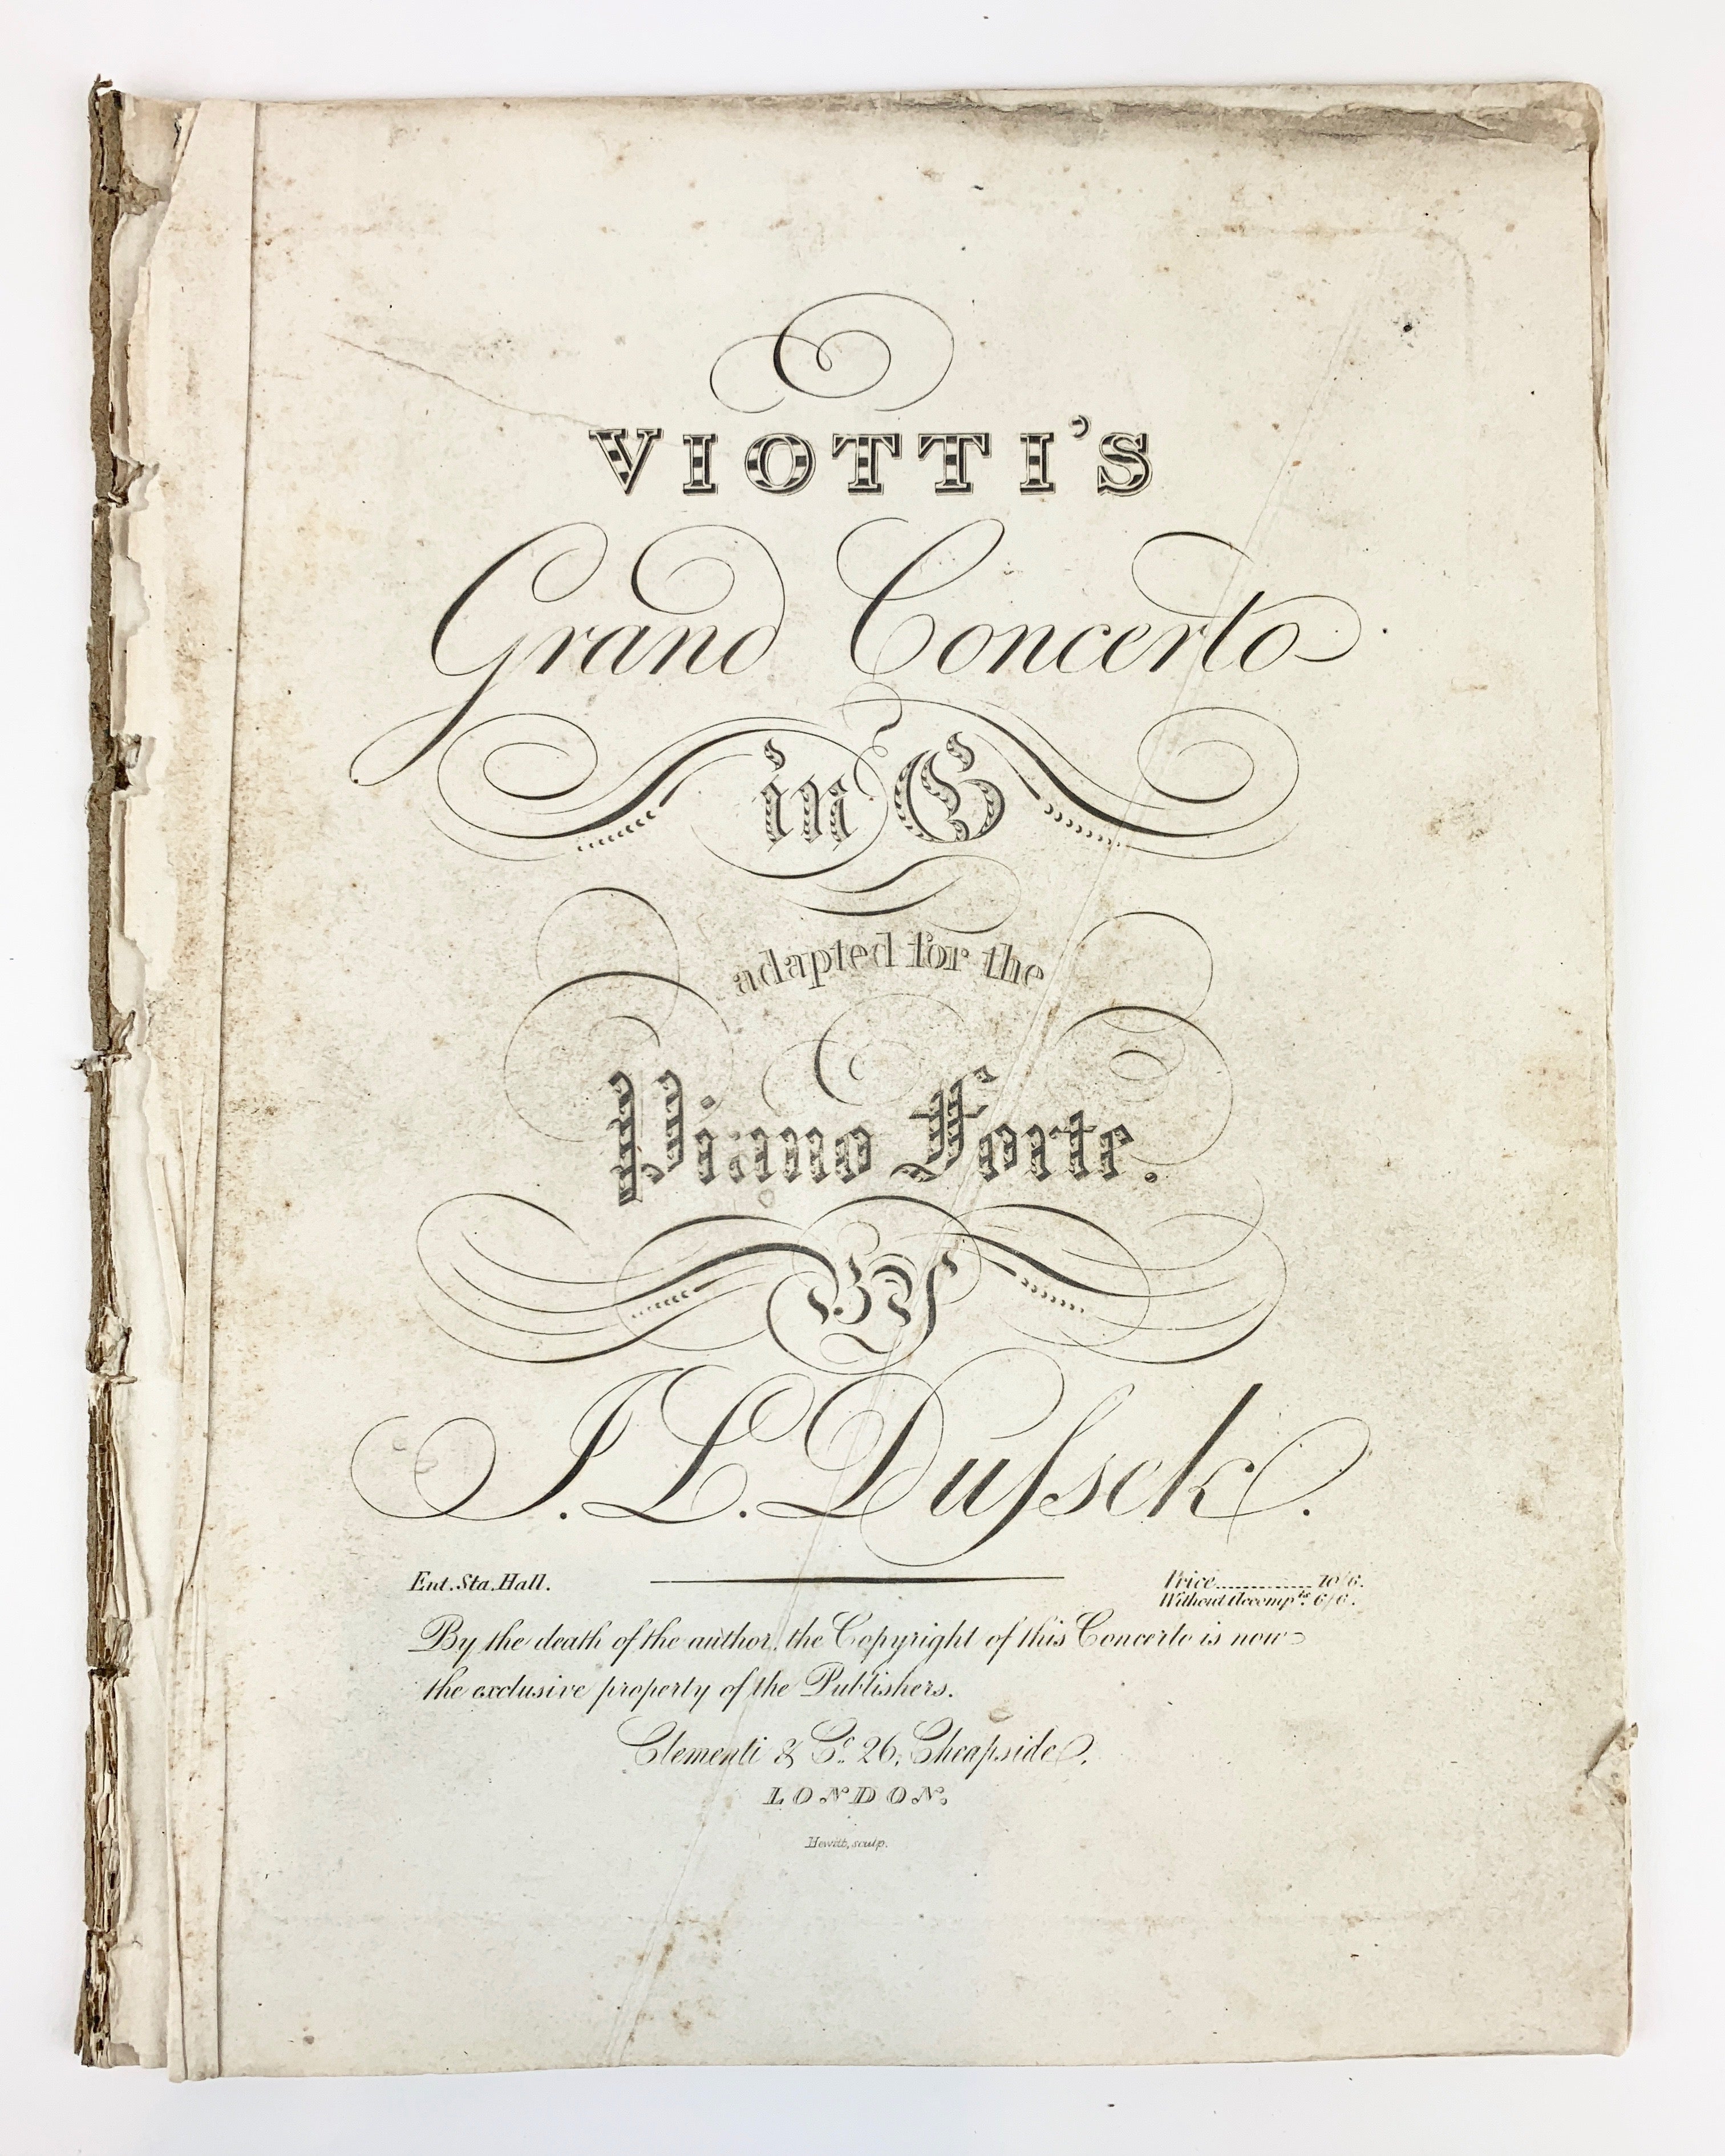 VIOTTI'S
Grand Concerto
in G
adapted for the
Piano Forte.
BY
J. L. Duſsek.
Ent. Sta. Hall.
Price............ 10/6.
Without Accompts. 6/6.
By the death of the author, the Copyright of this Concerto is now
the exclusive property of the Publishers.
Clementi & Co. 26, Cheapside.
LONDON,
Hewitt, sculp.